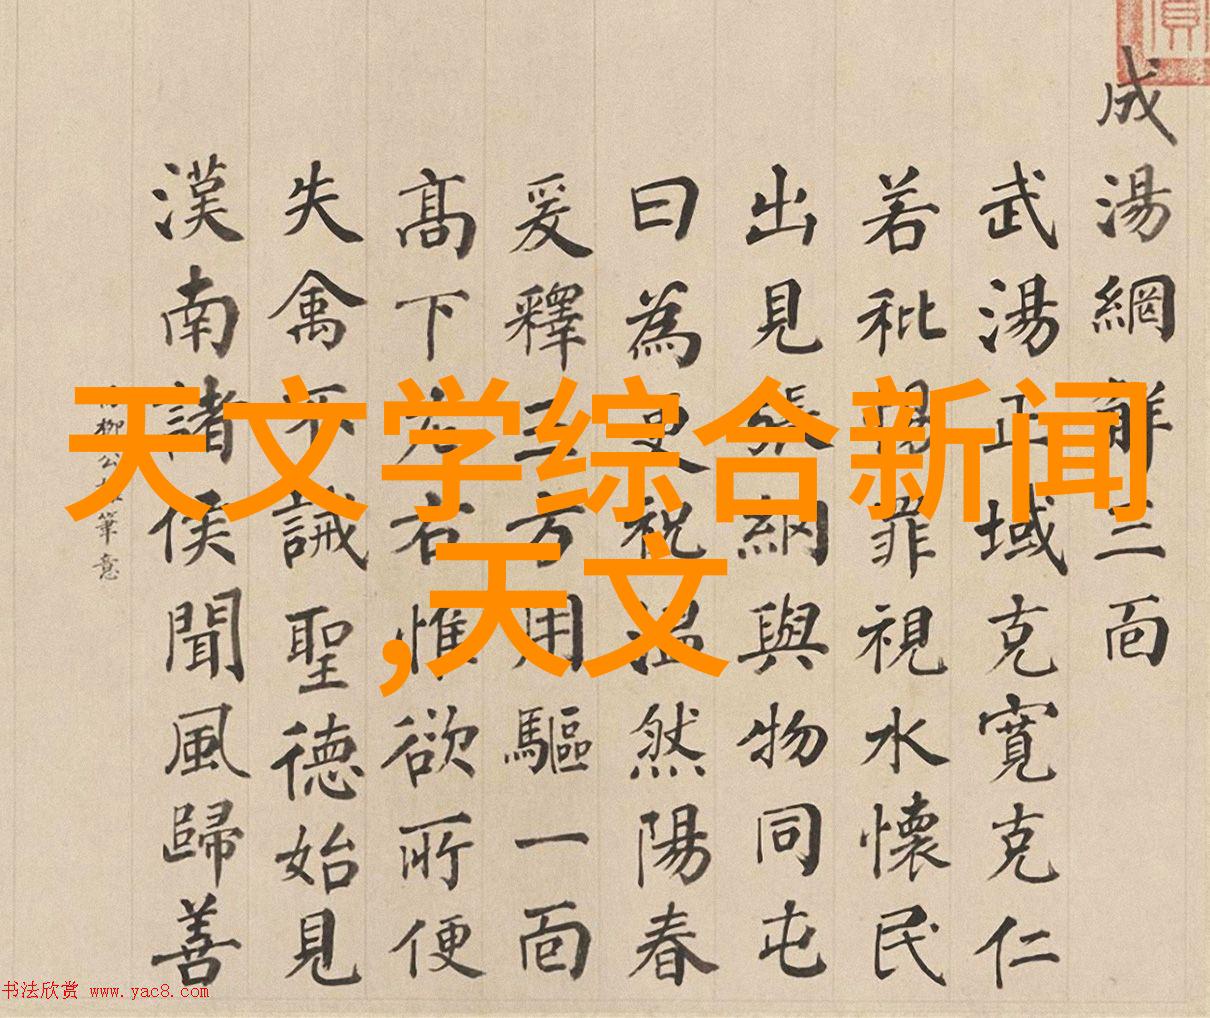 成湯網解三面
武湯正域克寬克仁
若秕朙罪視水懷民
出見張網與物同屯
曰為更祝溫然陽春
爰釋三方用驅一面
高下左右惟欲所便
失禽不誡聖德始見
漢南諸侯聞風歸善
柳公 筆意
天文学综合新闻
,天文
书法欣赏 www.yac8.com